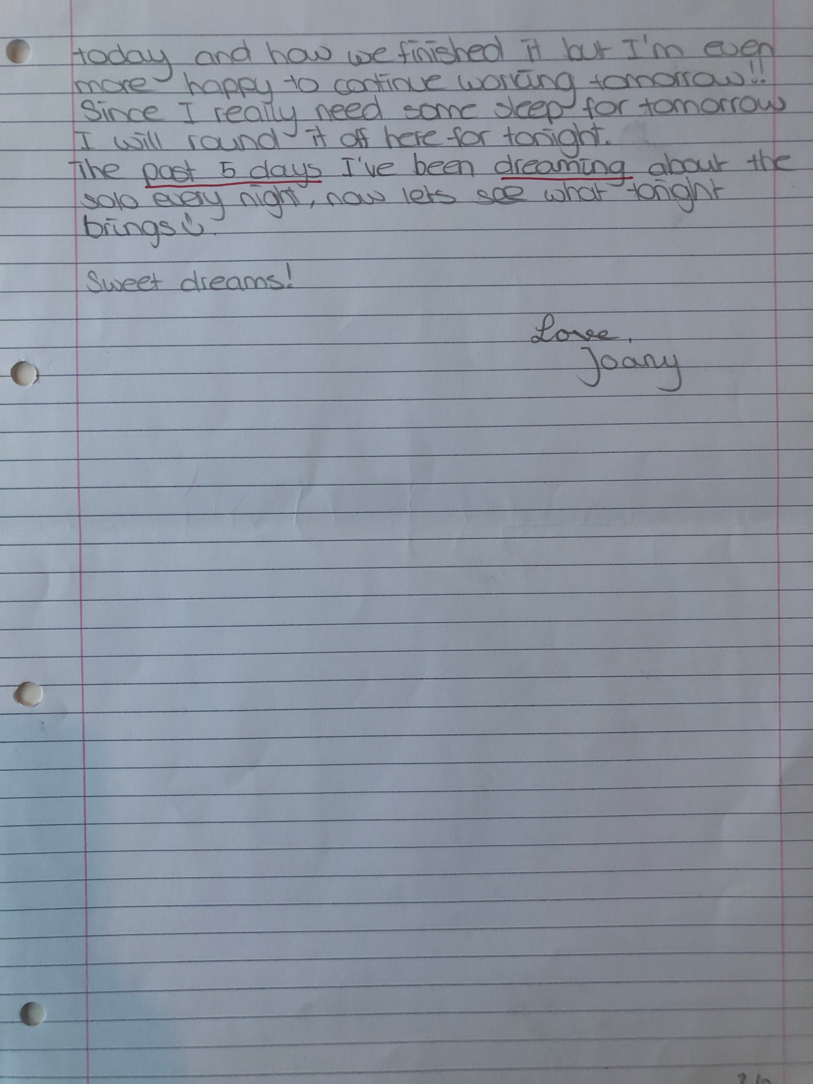 today and how we finished it but I'm even
more happy to continue working tomorrow!!
Since I really need some sleep for tomorrow
I will round it off here for tonight.
The past 5 days I've been dreaming about the
solo every night, now lets see what tonight
brings.
Sweet dreams!
Love,
Joany